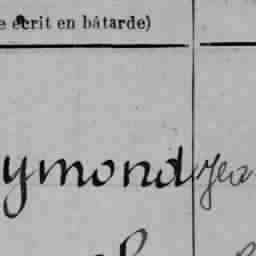 e écrit en bâtarde)
ymond Jea